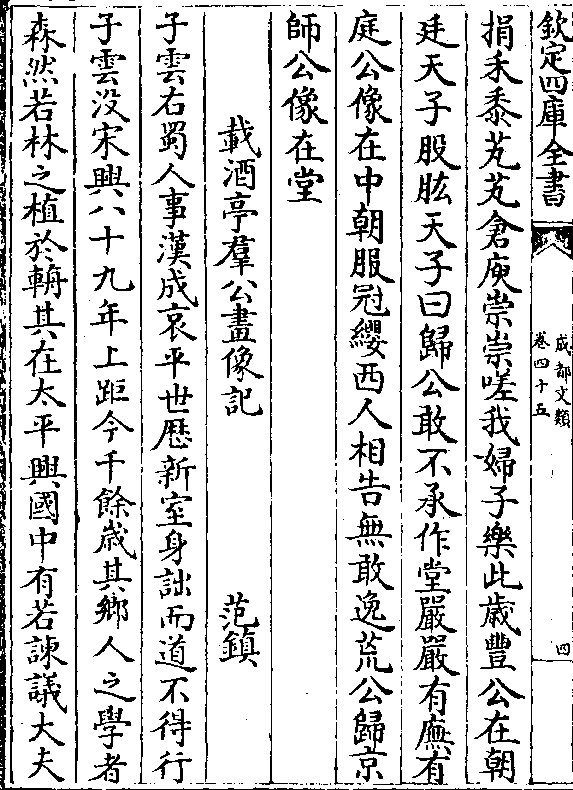 欽定四庫全書
成都文類
卷四十五
四
捐禾黍芃芃倉庾崇崇嗟我婦子樂此歲豐公在朝
廷天子股肱天子曰歸公敢不承作堂嚴嚴有廡有
庭公像在中朝服冠纓西人相告無敢逸荒公歸京
師公像在堂
載酒亭羣公畫像記
范鎮
子雲右蜀人事漢成哀平世厯新室身詘而道不得行
子雲没宋興八十九年上距今千餘歲其鄉人之學者
森然若林之植於輈其在太平興國中有若諫議大夫